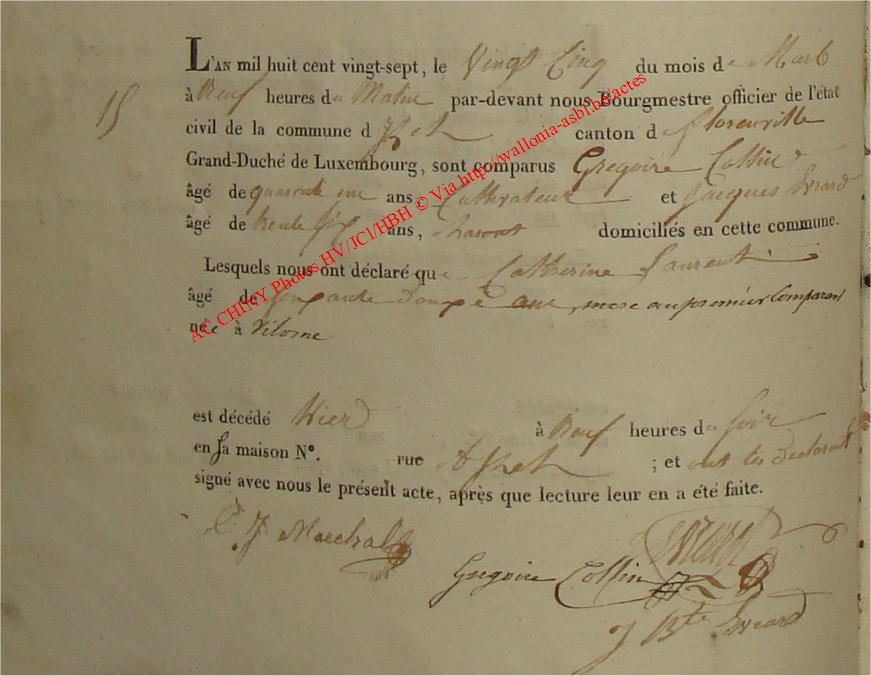 15
L'AN mil huit cent vingt-sept, le Vingt Cinq du mois de Mars
à Neuf heures du Matin par-devant nous Bourgmestre officier de l'état
civil de la commune d canton de florenville
Grand-Duché de Luxembourg, sont comparus Gregoire Collin
âgé de quarante un ans Cultivateur et Jacques Evrard
âgé de trente six ans, domiciliés en cette commune.
Lesquels nous ont déclaré que Catherine Laurent
âgé de Soixante Douze ans, mere au premier Comparant
née à
est décédé Hier à Neuf heures du soir
en sa maison N°. rue ; et ont les declarant
signé avec nous le présent acte, après que lecture leur en a été faite.
Marchal
Gregoire Collin
J Bte Evrard
AC CHINY Photos HV/JCl/HBH © Via http://wallonia-asbl.be/actes